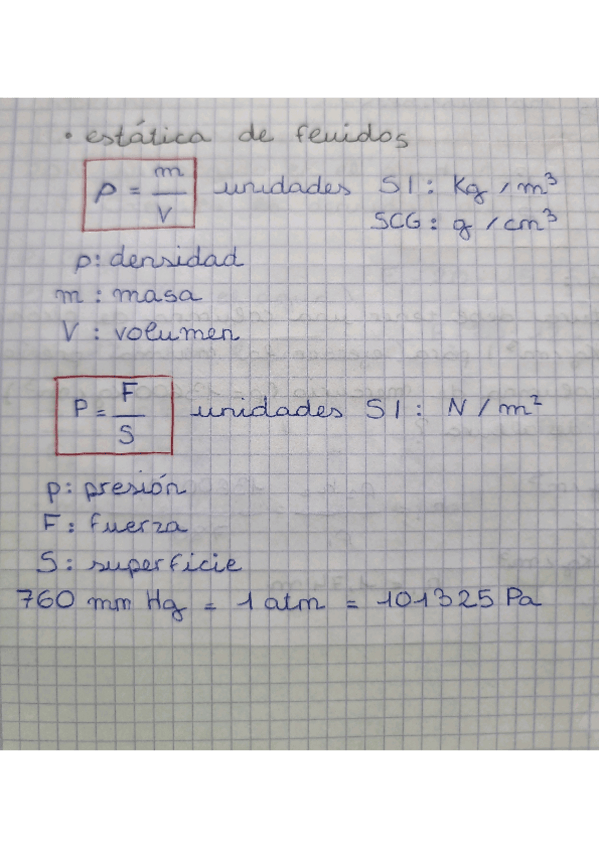 • estática de fluidos
ρ = m / V unidades SI: Kg / m³
SCG: g / cm³
ρ: densidad
m: masa
V: volumen
P = F / S unidades SI: N / m²
p: presión
F: fuerza
S: superficie
760 mm Hg = 1 atm = 101325 Pa